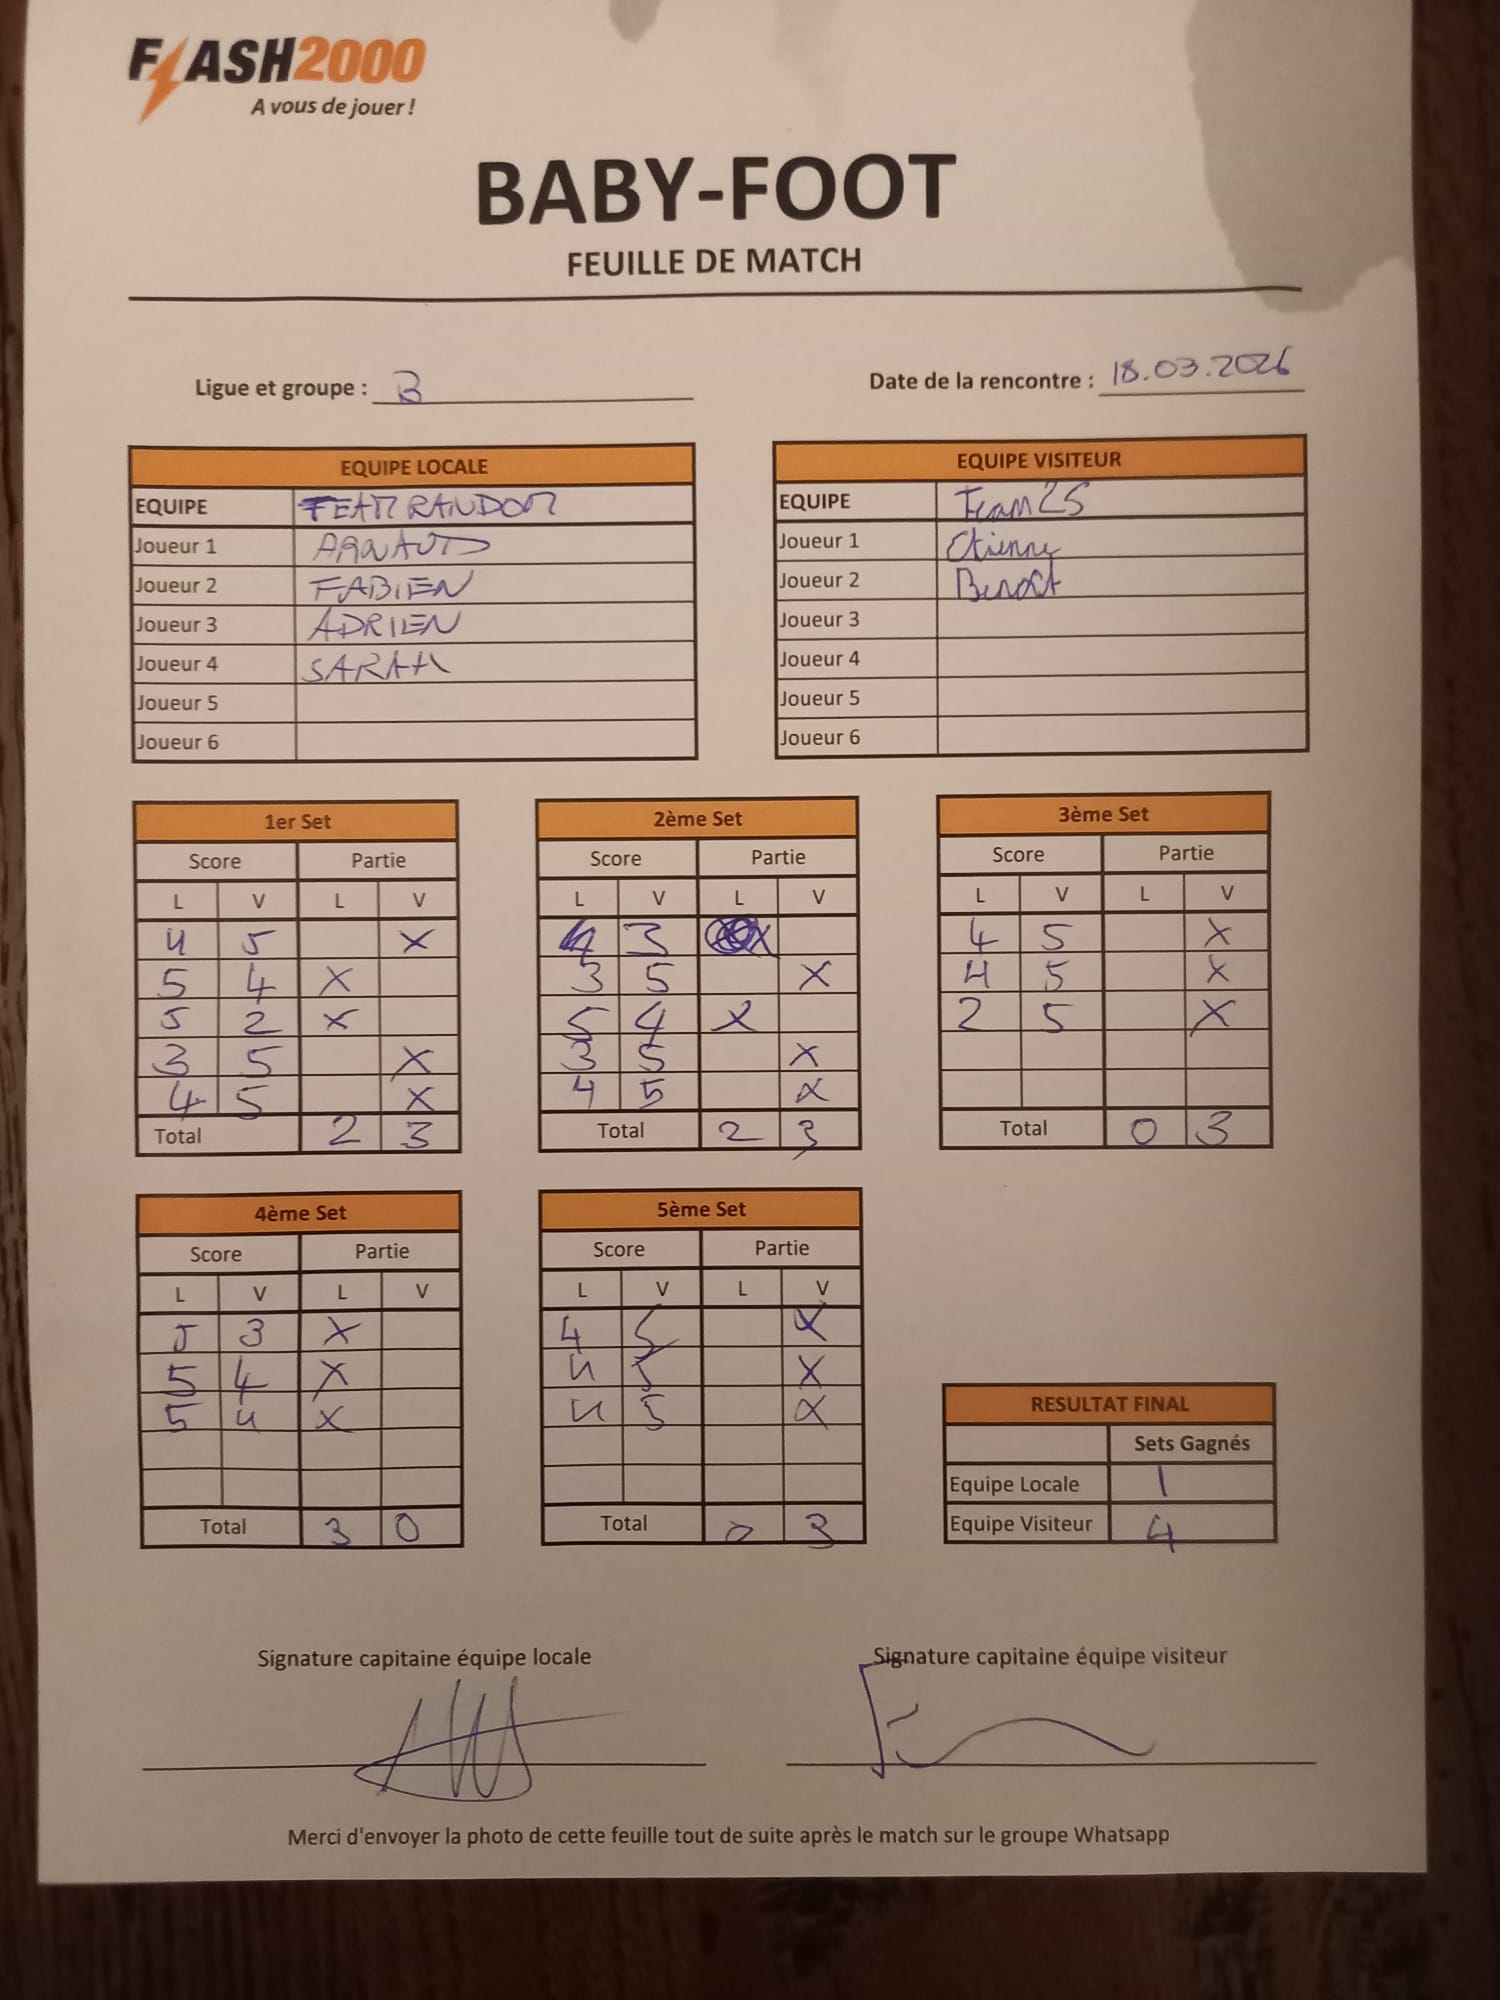 FLASH2000
A vous de jouer !
BABY-FOOT
FEUILLE DE MATCH
Ligue et groupe : B
Date de la rencontre : 18.03.2026
EQUIPE LOCALE
EQUIPE TEAM RANDOM
Joueur 1 ARNAUD
Joueur 2 FABIEN
Joueur 3 ADRIEN
Joueur 4 SARAH
Joueur 5
Joueur 6
EQUIPE VISITEUR
EQUIPE Team 25
Joueur 1 Etienne
Joueur 2 Benoît
Joueur 3
Joueur 4
Joueur 5
Joueur 6
1er Set
Score Partie
L V L V
4 5 X
5 4 X
5 2 X
3 5 X
4 5 X
Total 2 3
2ème Set
Score Partie
L V L V
3 X
3 5 X
5 4 X
3 5 X
4 5 X
Total 2 3
3ème Set
Score Partie
L V L V
4 5 X
4 5 X
2 5 X
Total 0 3
4ème Set
Score Partie
L V L V
5 3 X
5 4 X
5 4 X
Total 3 0
5ème Set
Score Partie
L V L V
4 5 X
4 5 X
4 5 X
Total 0 3
RESULTAT FINAL
Sets Gagnés
Equipe Locale 1
Equipe Visiteur 4
Signature capitaine équipe locale
Signature capitaine équipe visiteur
Merci d'envoyer la photo de cette feuille tout de suite après le match sur le groupe Whatsapp